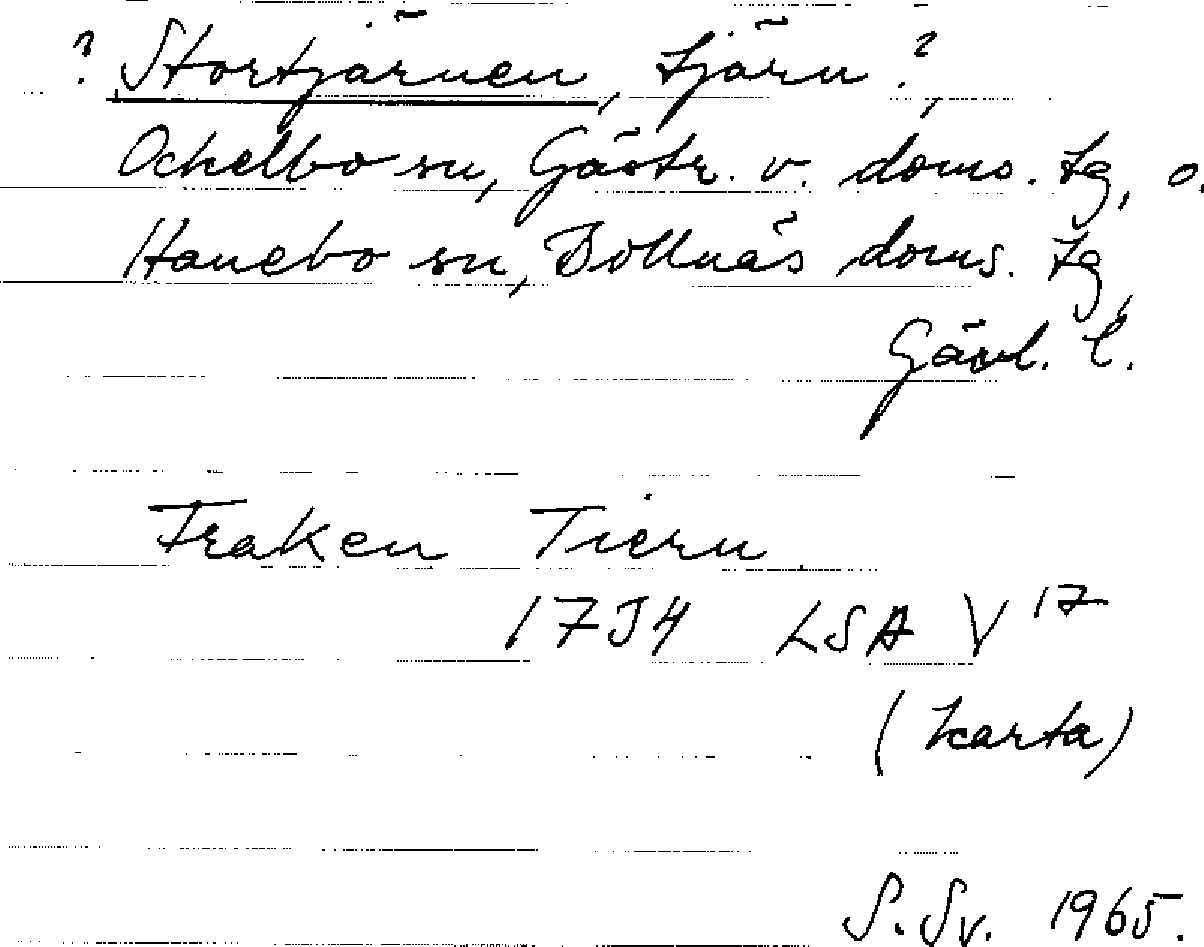 ? Stortjärnen, tjärn ?,
Ockelbo sn, Gästr. v. doms. tg, o.
Hanebo sn, Bollnäs doms. tg,
Gävl. l.
Fraken Tiern
1734 LSA V 17
(karta)
S. Sv. 1965.